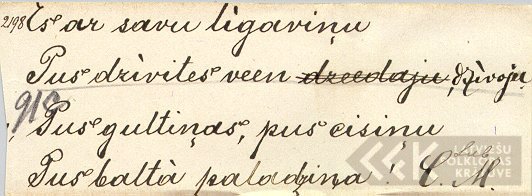 2198 Es ar savu lìgaviņu
Pusᵉ drìvitesᵉ veen dzeedaju, dzìvoju
918
Pusᵉ gultiņas, pusᵉ cisiņu
Pusᵉ baltà paladziņa!
LATVIEŠU
FOLKLORAS
KRĀTUVE